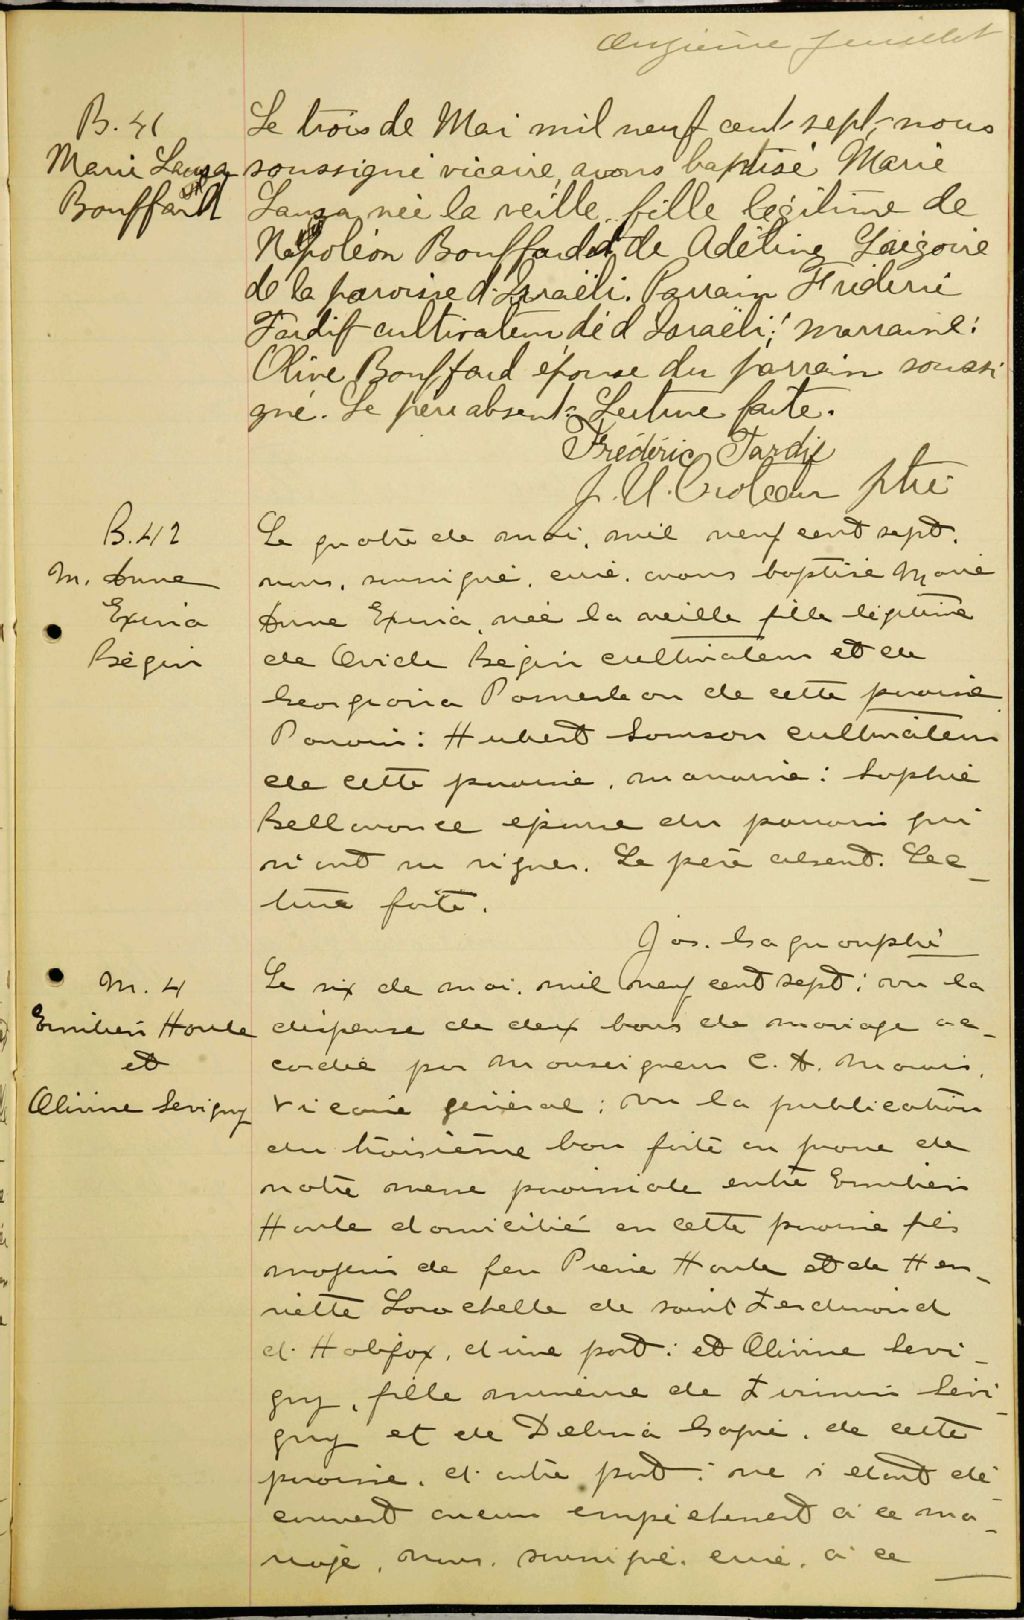 Onzième feuillet
B. 41
Marie Laura
Bouffard
Le trois de Mai mil neuf cent sept, nous
soussigné vicaire, avons baptisé Marie
Laura née la veille, fille légitime de
Napoléon Bouffard et de Adéline Grégoire
de la paroisse d'Israëli. Parrain Fréderic
Tardif cultivateur de d'Israëli; marraine:
Olive Bouffard épouse du parrain soussi
gné. Le père absent. Lecture faite.
Frédéric Tardif
J. U. Croteau ptre
B. 42
M. Anna
Exina
Bégin
Le quatre de mai, mil neuf cent sept,
nous, soussigné, curé, avons baptisé Marie
Anna Exina, née la veille fille légitime
de Ovide Bégin cultivateur et de
Georgiana Pomerleau de cette paroisse
Parrain: Hubert Samson cultivateur
de cette paroisse, marraine: Sophie
Bellavance épouse du parrain qui
n'ont su signer. Le père absent. Lec_
ture faite.
Jos.
M. 4
Emilien Houle
et
Olivine Sevigny
Le six de mai, mil neuf cent sept; vu la
dispense de deux bans de mariage ac_
cordée par Monseigneur C. A. Marois,
vicaire général; vu la publication
du troisième ban faite au prone de
notre messe paroissiale entre Emilien
Houle domicilié en cette paroisse fils
majeur de feu Pierre Houle et de Hen_
riette Larochelle de saint Ferdinand
d'Halifax, d'une part; et Olivine Sevi_
gny, fille mineure de Firmin Sévi_
gny et de Delina Gagné, de cette
paroisse, d'autre part; ne s'étant dé_
couvert aucun empêchement à ce ma_
riage, nous, soussigné, curé, à ce